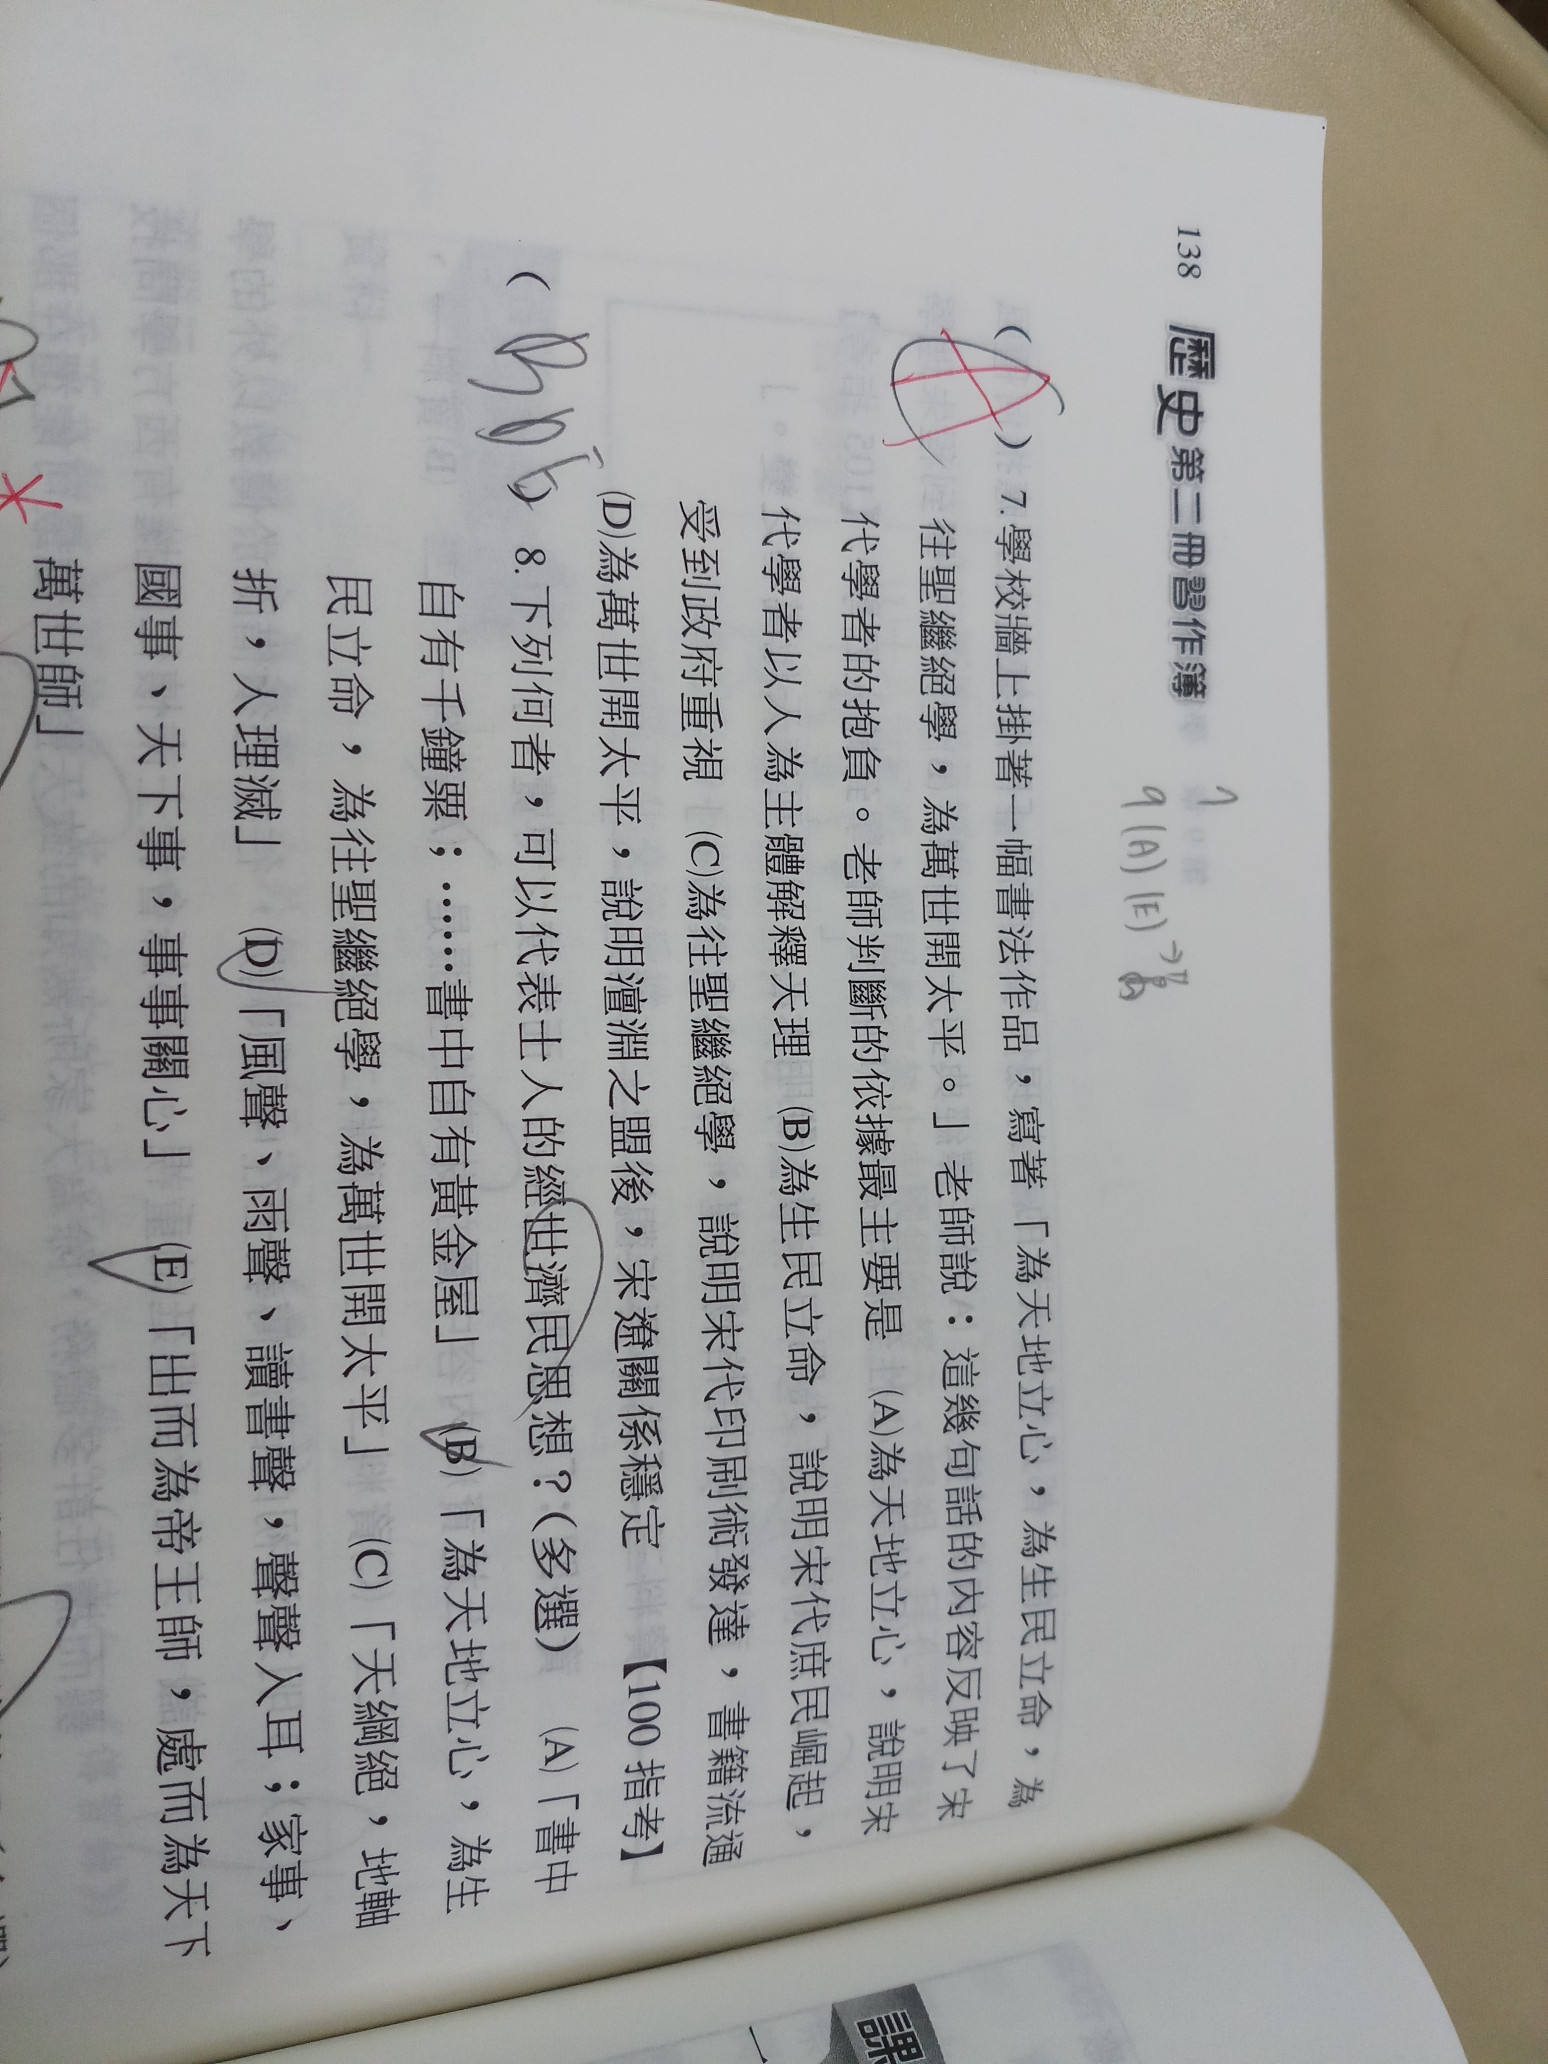 138 歷史第二冊習作簿
7
9(A)(E)→
(A) 7.學校牆上掛著一幅書法作品，寫著「為天地立心，為生民立命，為
往聖繼絕學，為萬世開太平。」老師說：這幾句話的內容反映了宋
代學者的抱負。老師判斷的依據最主要是 (A)為天地立心，說明宋
代學者以人為主體解釋天理 (B)為生民立命，說明宋代庶民崛起，
受到政府重視 (C)為往聖繼絕學，說明宋代印刷術發達，書籍流通
(D)為萬世開太平，說明澶淵之盟後，宋遼關係穩定 【100指考】
(BDE) 8.下列何者，可以代表士人的經世濟民思想？(多選) (A)「書中
自有千鐘粟；……書中自有黃金屋」 (B)「為天地立心，為生
民立命，為往聖繼絕學，為萬世開太平」 (C)「天綱絕，地軸
折，人理滅」 (D)「風聲、雨聲、讀書聲，聲聲入耳；家事、
國事、天下事，事事關心」 (E)「出而為帝王師，處而為天下
萬世師」
課
一